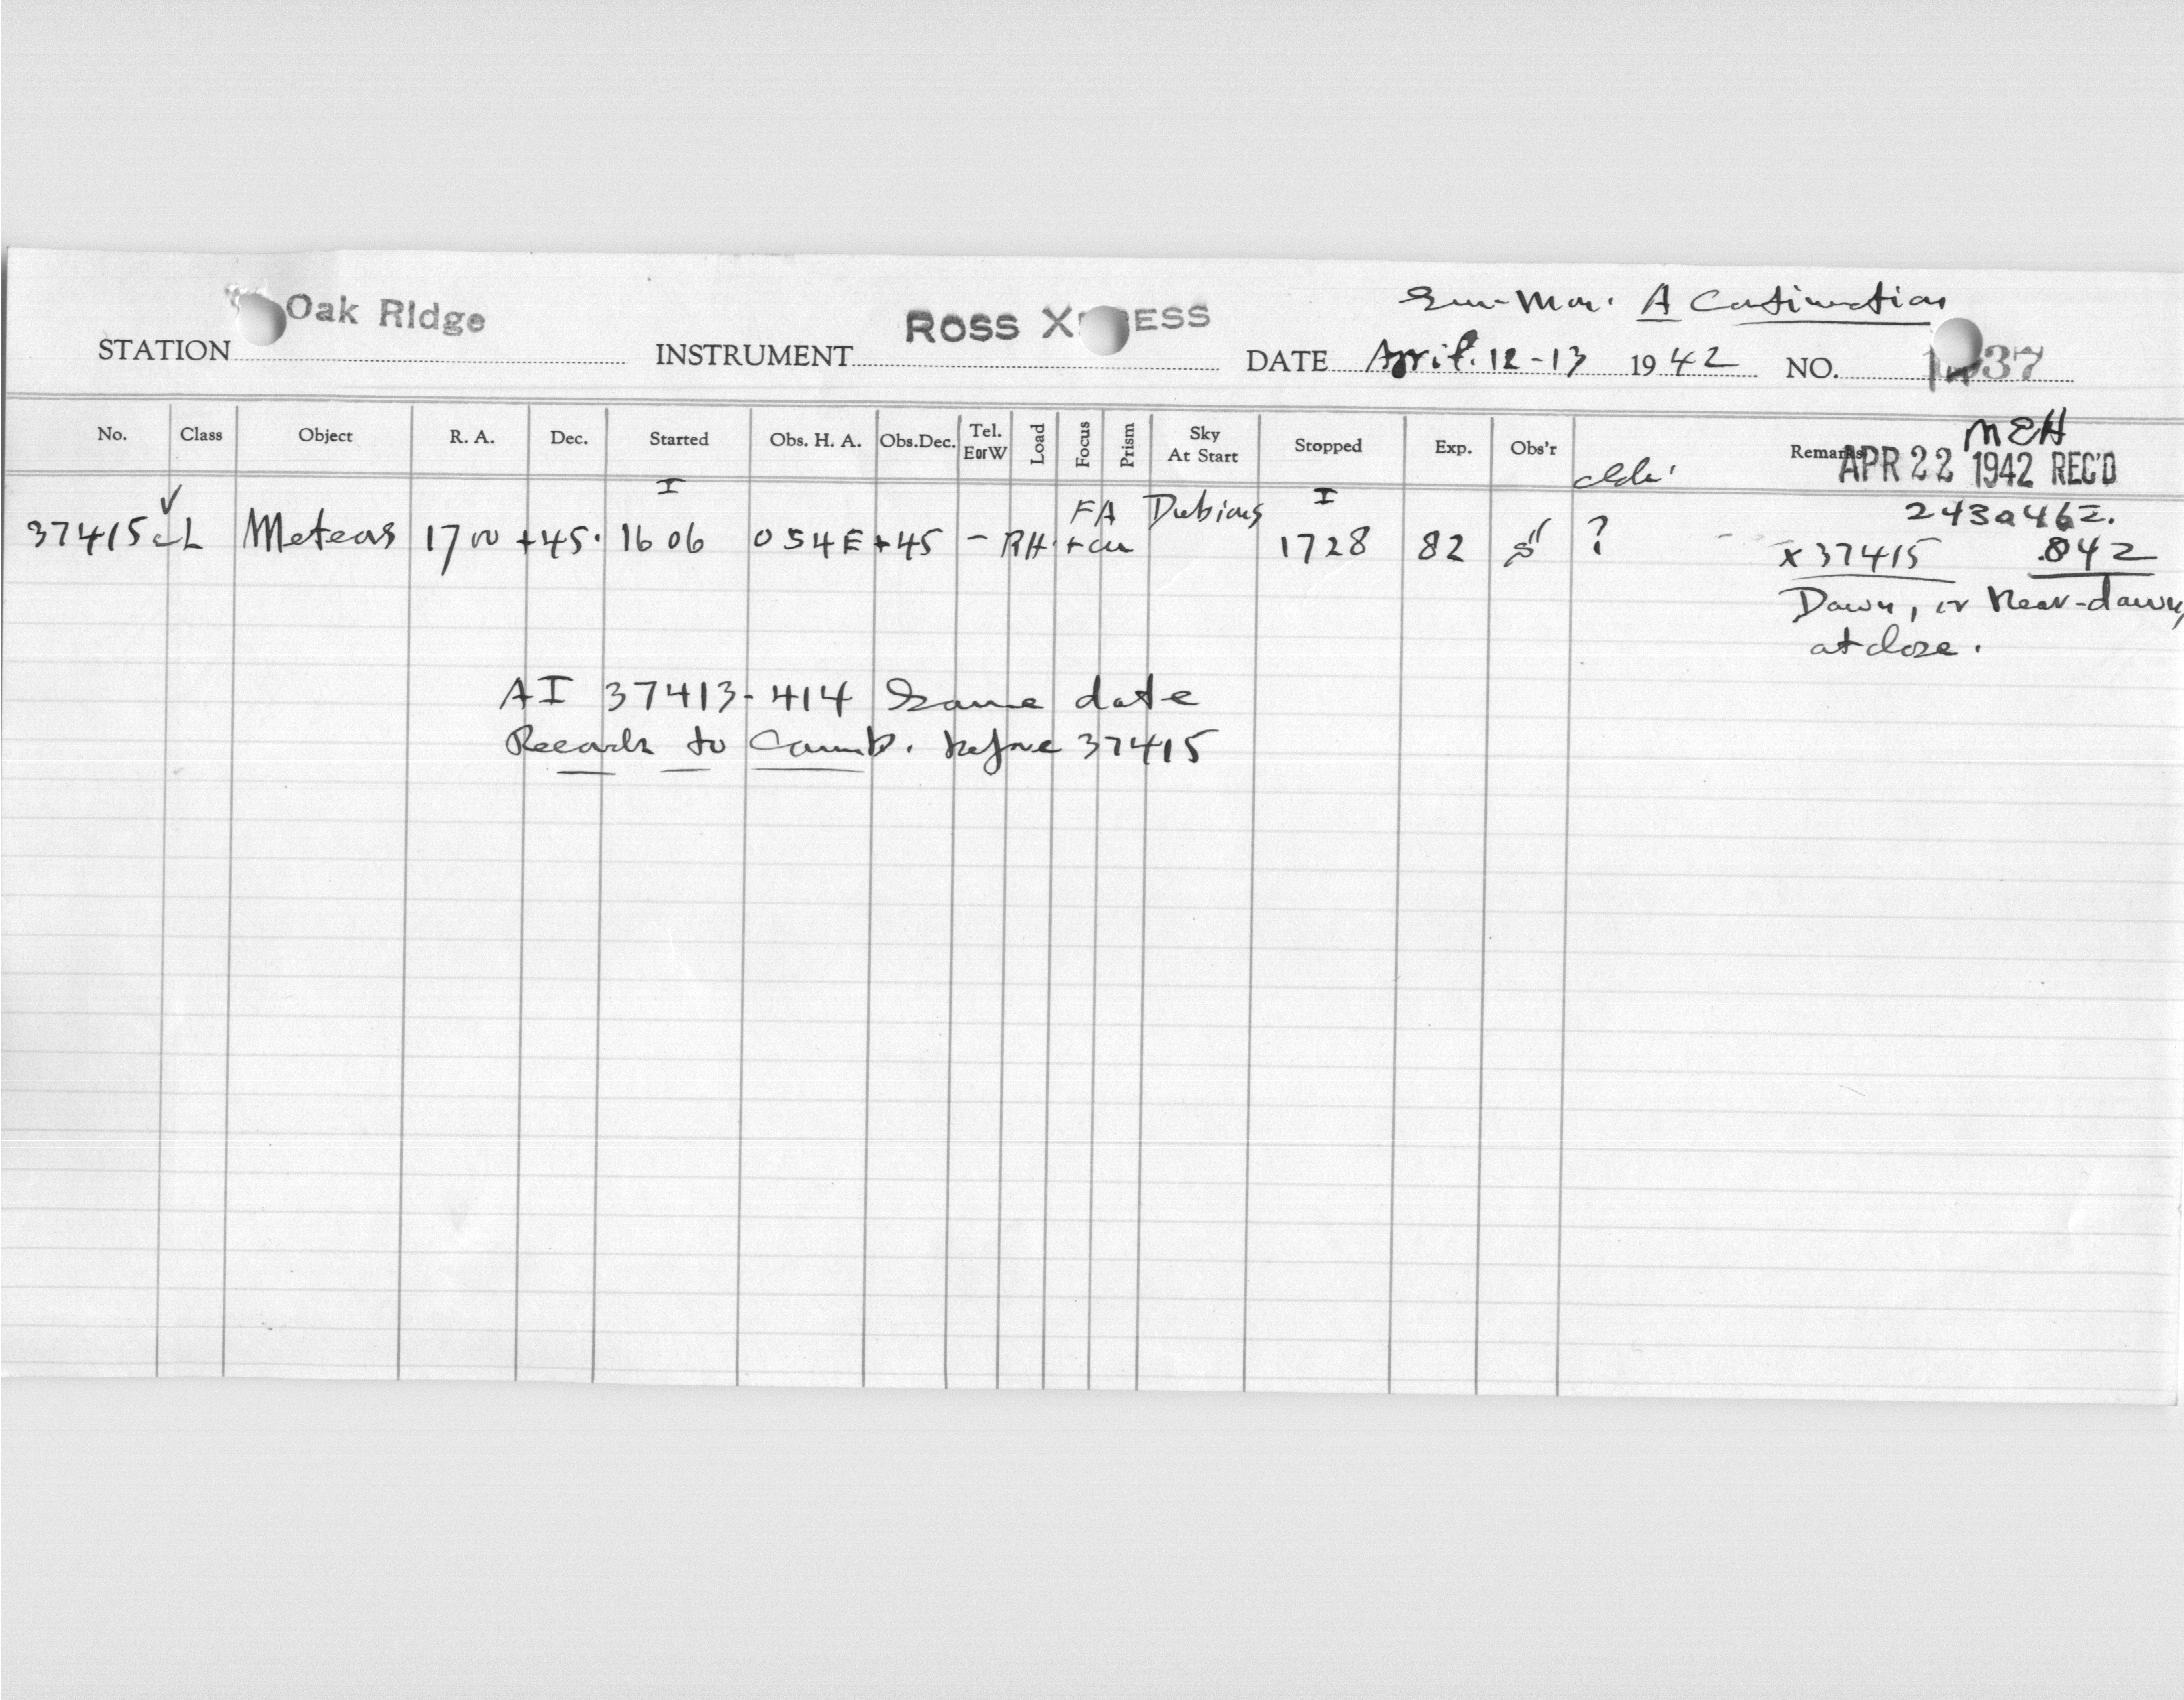 Sun-Mon. A Continuation
STATION Oak Ridge INSTRUMENT ROSS X ESS DATE April. 12-13 1942 NO. 37
No. Class Object R. A. Dec. Started Obs. H. A. Obs.Dec. Tel. EorW Load Focus Prism Sky At Start Stopped Exp. Obs'r Remarks
MEH
APR 22 1942 REC'D
I FA Dubious I
37415 L Meteors 17 00 +45. 16 06 0 54 E +45 - RH 1728 82 ?
x 37415 .842
Dawn, or Near-dawn,
at close.
AI 37413-414 Same date
Records to Camb. before 37415